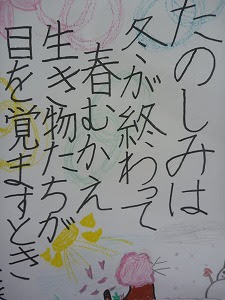 たのしみは
冬が終わって
春むかえ
生き物たちが
目を覚ますとき